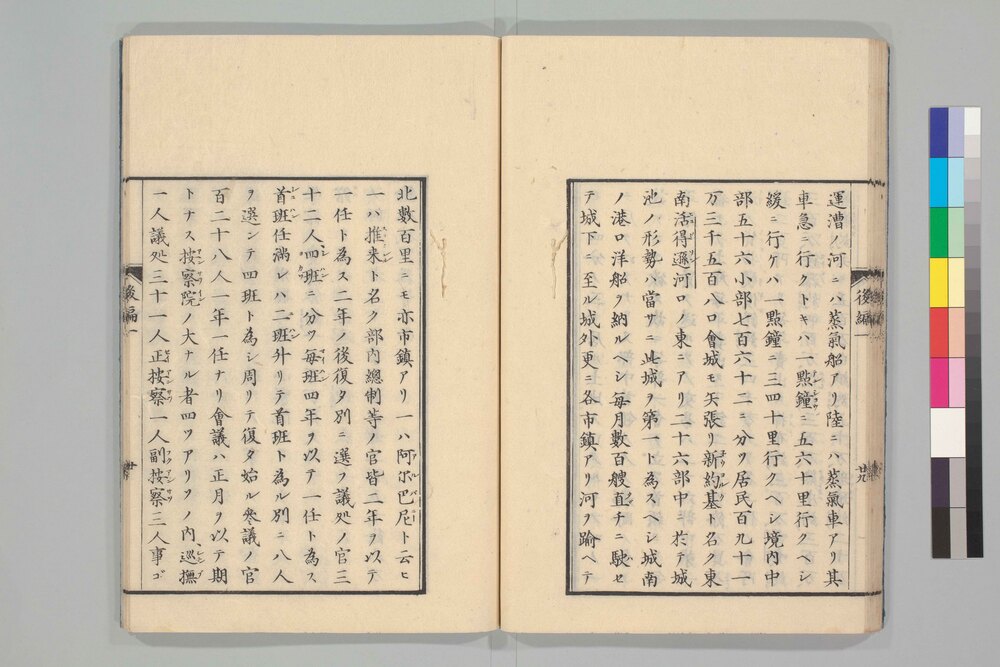 運漕ノ河ニハ蒸氣船アリ陸ニハ蒸氣車アリ其
車急ニ行クトキハ一點鐘ニ五六十里行クヘシ
緩ニ行ケハ一點鐘ニ三四十里行クヘシ境内中
部五十六小部七百六十二ニ分ツ居民百九十一
万三千五百八口會城モ矢張リ新約基ト名ク東
南活得遜河口ノ東ニアリ二十六部中ニ於テ城
池ノ形勢ハ當サニ此城ヲ第一ト為スヘシ城南
ノ港口洋船ヲ納ルヘシ毎月數百艘直チニ駛セ
テ城下ニ至ル城外更ニ各市鎮アリ河ヲ踰ヘテ
後編一
廿九
北數百里ニモ亦市鎮アリ一ハ阿尓巴尼ト云ヒ
一ハ推来ト名ク部内總制等ノ官皆二年ヲ以テ
一任ト為ス二年ノ後復タ別ニ選フ議処ノ官三
十二人四班ニ分ツ毎班四年ヲ以テ一任ト為ス
首班任満レハ二班外リテ首班ト為ル別ニ八人
ヲ選ンテ四班ト為シ周リテ復タ始ル參議ノ官
百二十八人一年一任ナリ會議ハ正月ヲ以テ期
トナス按察院ノ大ナル者四ツアリソノ内巡撫
一人議処三十一人正按察一人副按察三人事ゴ
後編一
廿